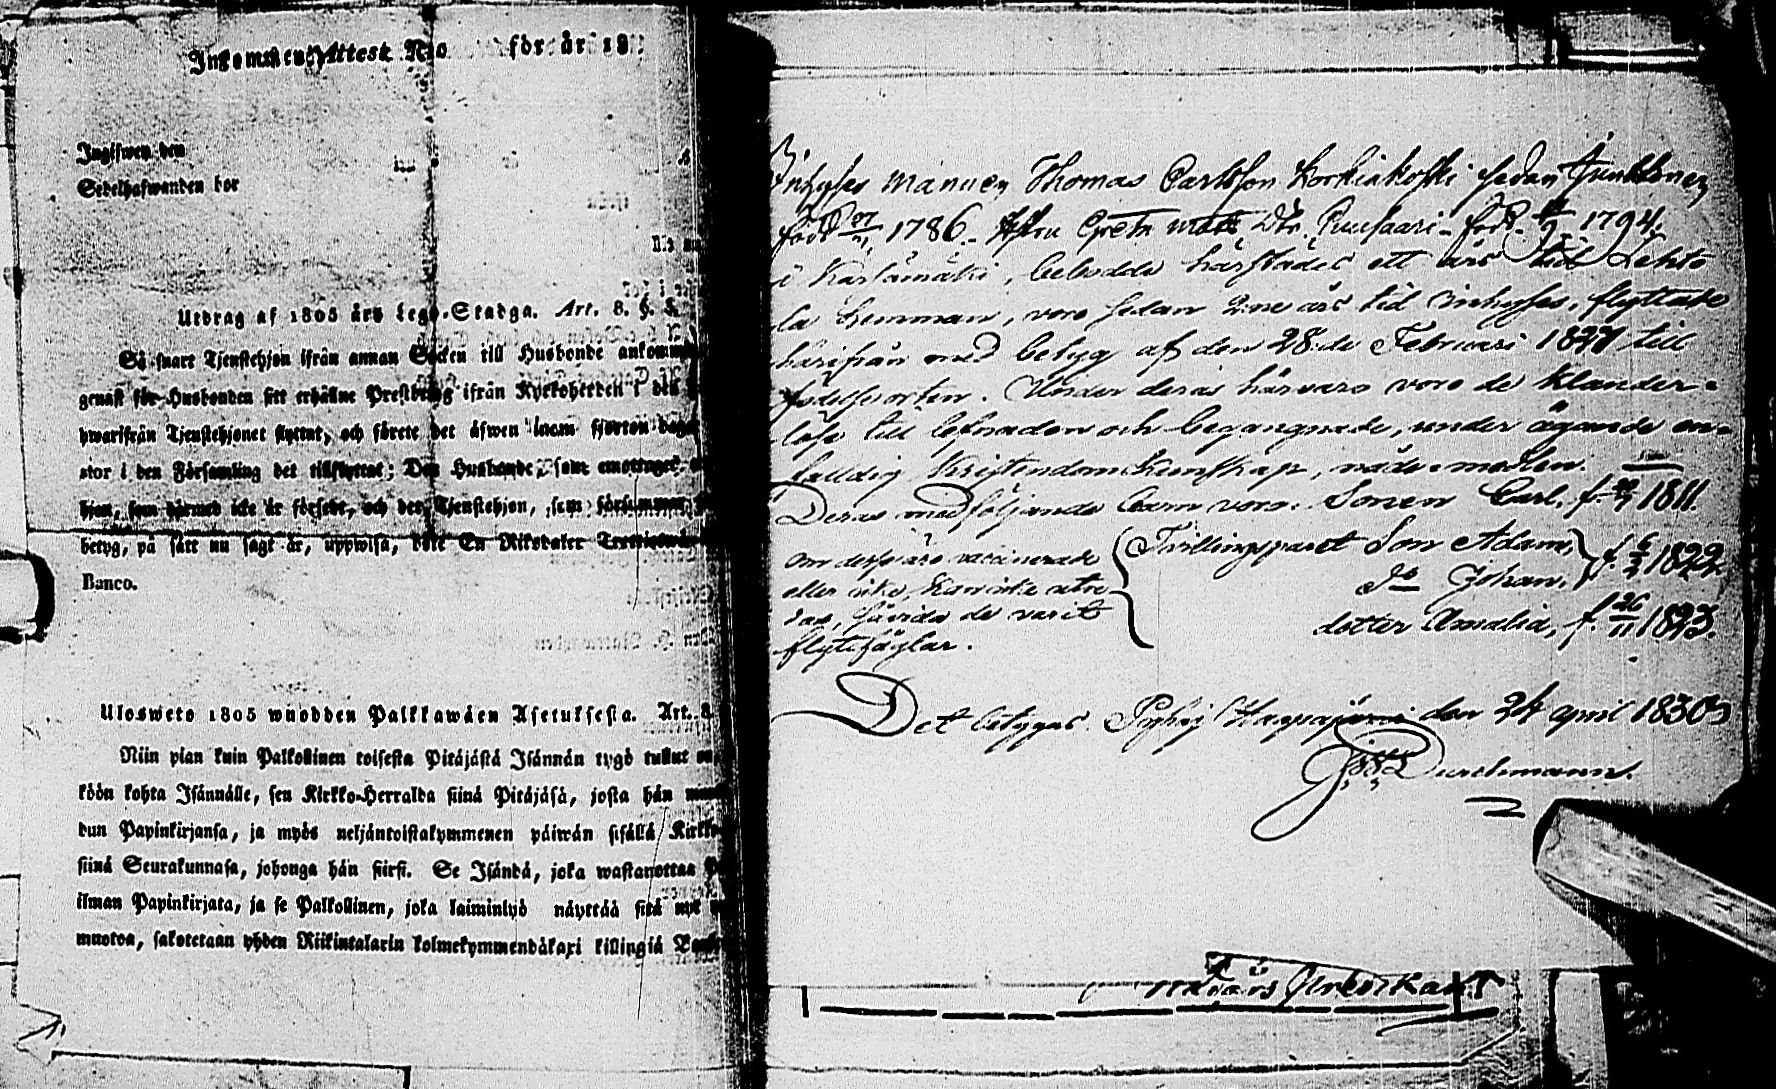 Inkommen Attest No för år 18
Ingifwen den
Sedelhafwanden bor
Utdrag af 1805 års Lego-Stadga. Art. 8. §. 8.
Så snart Tjenstehjon ifrån annan Socken till Husbonde ankommer
genast för Husbonden sitt erhållne Prestbetyg ifrån Kyrkoherden i den
hwarifrån Tjenstehjonet flyttat, och förete det äfwen inom fjorton dagar
stor i den Församling det tillflyttat; Den Husbonde, som emottager
hjon, som härmed icke är försedt, och det Tjenstehjon, som försummar
betyg, på sätt nu sagt är, uppwisa, böte En Riksdaler
Banco.
Ulosweto 1805 wuodden Palkkawäen Asetuksesta. Art. 8.
Niin pian kuin Palkollinen toisesta Pitäjästä Isännän tygö tullut on,
köön kohta Isännälle, sen Kirkko-Herralda siinä Pitäjäsä, josta hän
dun Papinkirjansa, ja myös neljäntoistakymmenen päiwän sisällä Kirkko-
siinä Seurakunnasa, johonga hän siirsi. Se Isändä, joka wastanottaa
ilman Papinkirjata, ja se Palkollinen, joka laiminlyö näyttää sitä nyt
muotoa, sakotetaan yhden Riikintalarin kolmekymmendäkaxi killingiä
Inhyses mannen Thomas Carlsson Korkiakoski sedan
född 1786. Hustru Greta Matts Dtr. Puusaari född 1794.
i Kärsämäki, bebodde härstädes ett års tid Lehto
la hemman, voro sedan 2:ne års tid inhyses, flyttade
härifrån med betyg af den 28:de Februari 1827 till
födelseorten. Under deras härvaro voro de klander-
löse till lefnaden och begangnade, under ägande en-
falldig Kristendoms Kunskap, nådemedlen.
Deras medföljande barn voro: Sonen Carl, f. 1811.
om desse äro vaccinerade Tvillingparet Son Adam, f. 6/2 1822.
eller icke, kan icke utre- Do Johan,
das, såvida de varit dotter Amalia, f. 26/11 1823.
flytfåglar.
Det betygas. Pyhäj Haapajärvi den 24 april 1830
Durchmann.